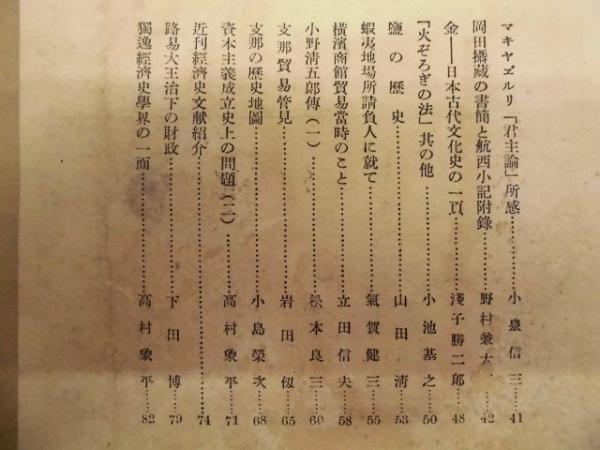 マキヤヹルリ「君主論」所感……………小泉信三……41
岡田攝藏の書簡と航西小記附錄………野村兼太……42
金――日本古代文化史の一頁…………淺子勝二郎……48
「火ぞろぎの法」其の他………………小池基之……50
鹽の歷史………………………………山田淸……53
蝦夷地場所請負人に就て………………氣賀健三……55
橫濱商館貿易當時のこと………………立田信夫……58
小野淸五郎傳(一)……………………松本良三……60
支那貿易管見…………………………岩田仭……65
支那の歷史地圖………………………小島榮次……68
資本主義成立史上の問題(二)………高村象平……71
近刊經濟史文献紹介……………………74
路易大王治下の財政……………………下田博……79
獨逸經濟史學界の一面…………………高村象平……82